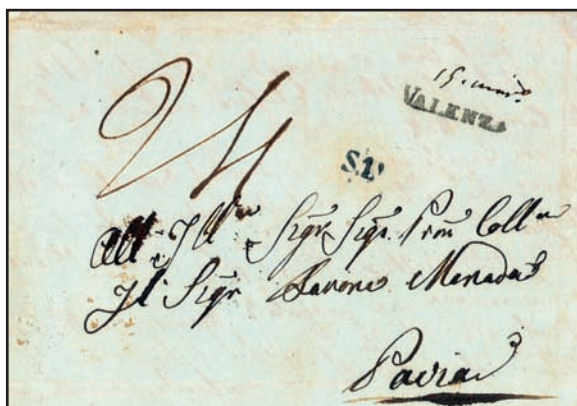 24
15.
VALENZA
S.1º
All Ill.mo Sigr Sigr Pron Coll.mo
Il Sigr Barone Menada
Pavia